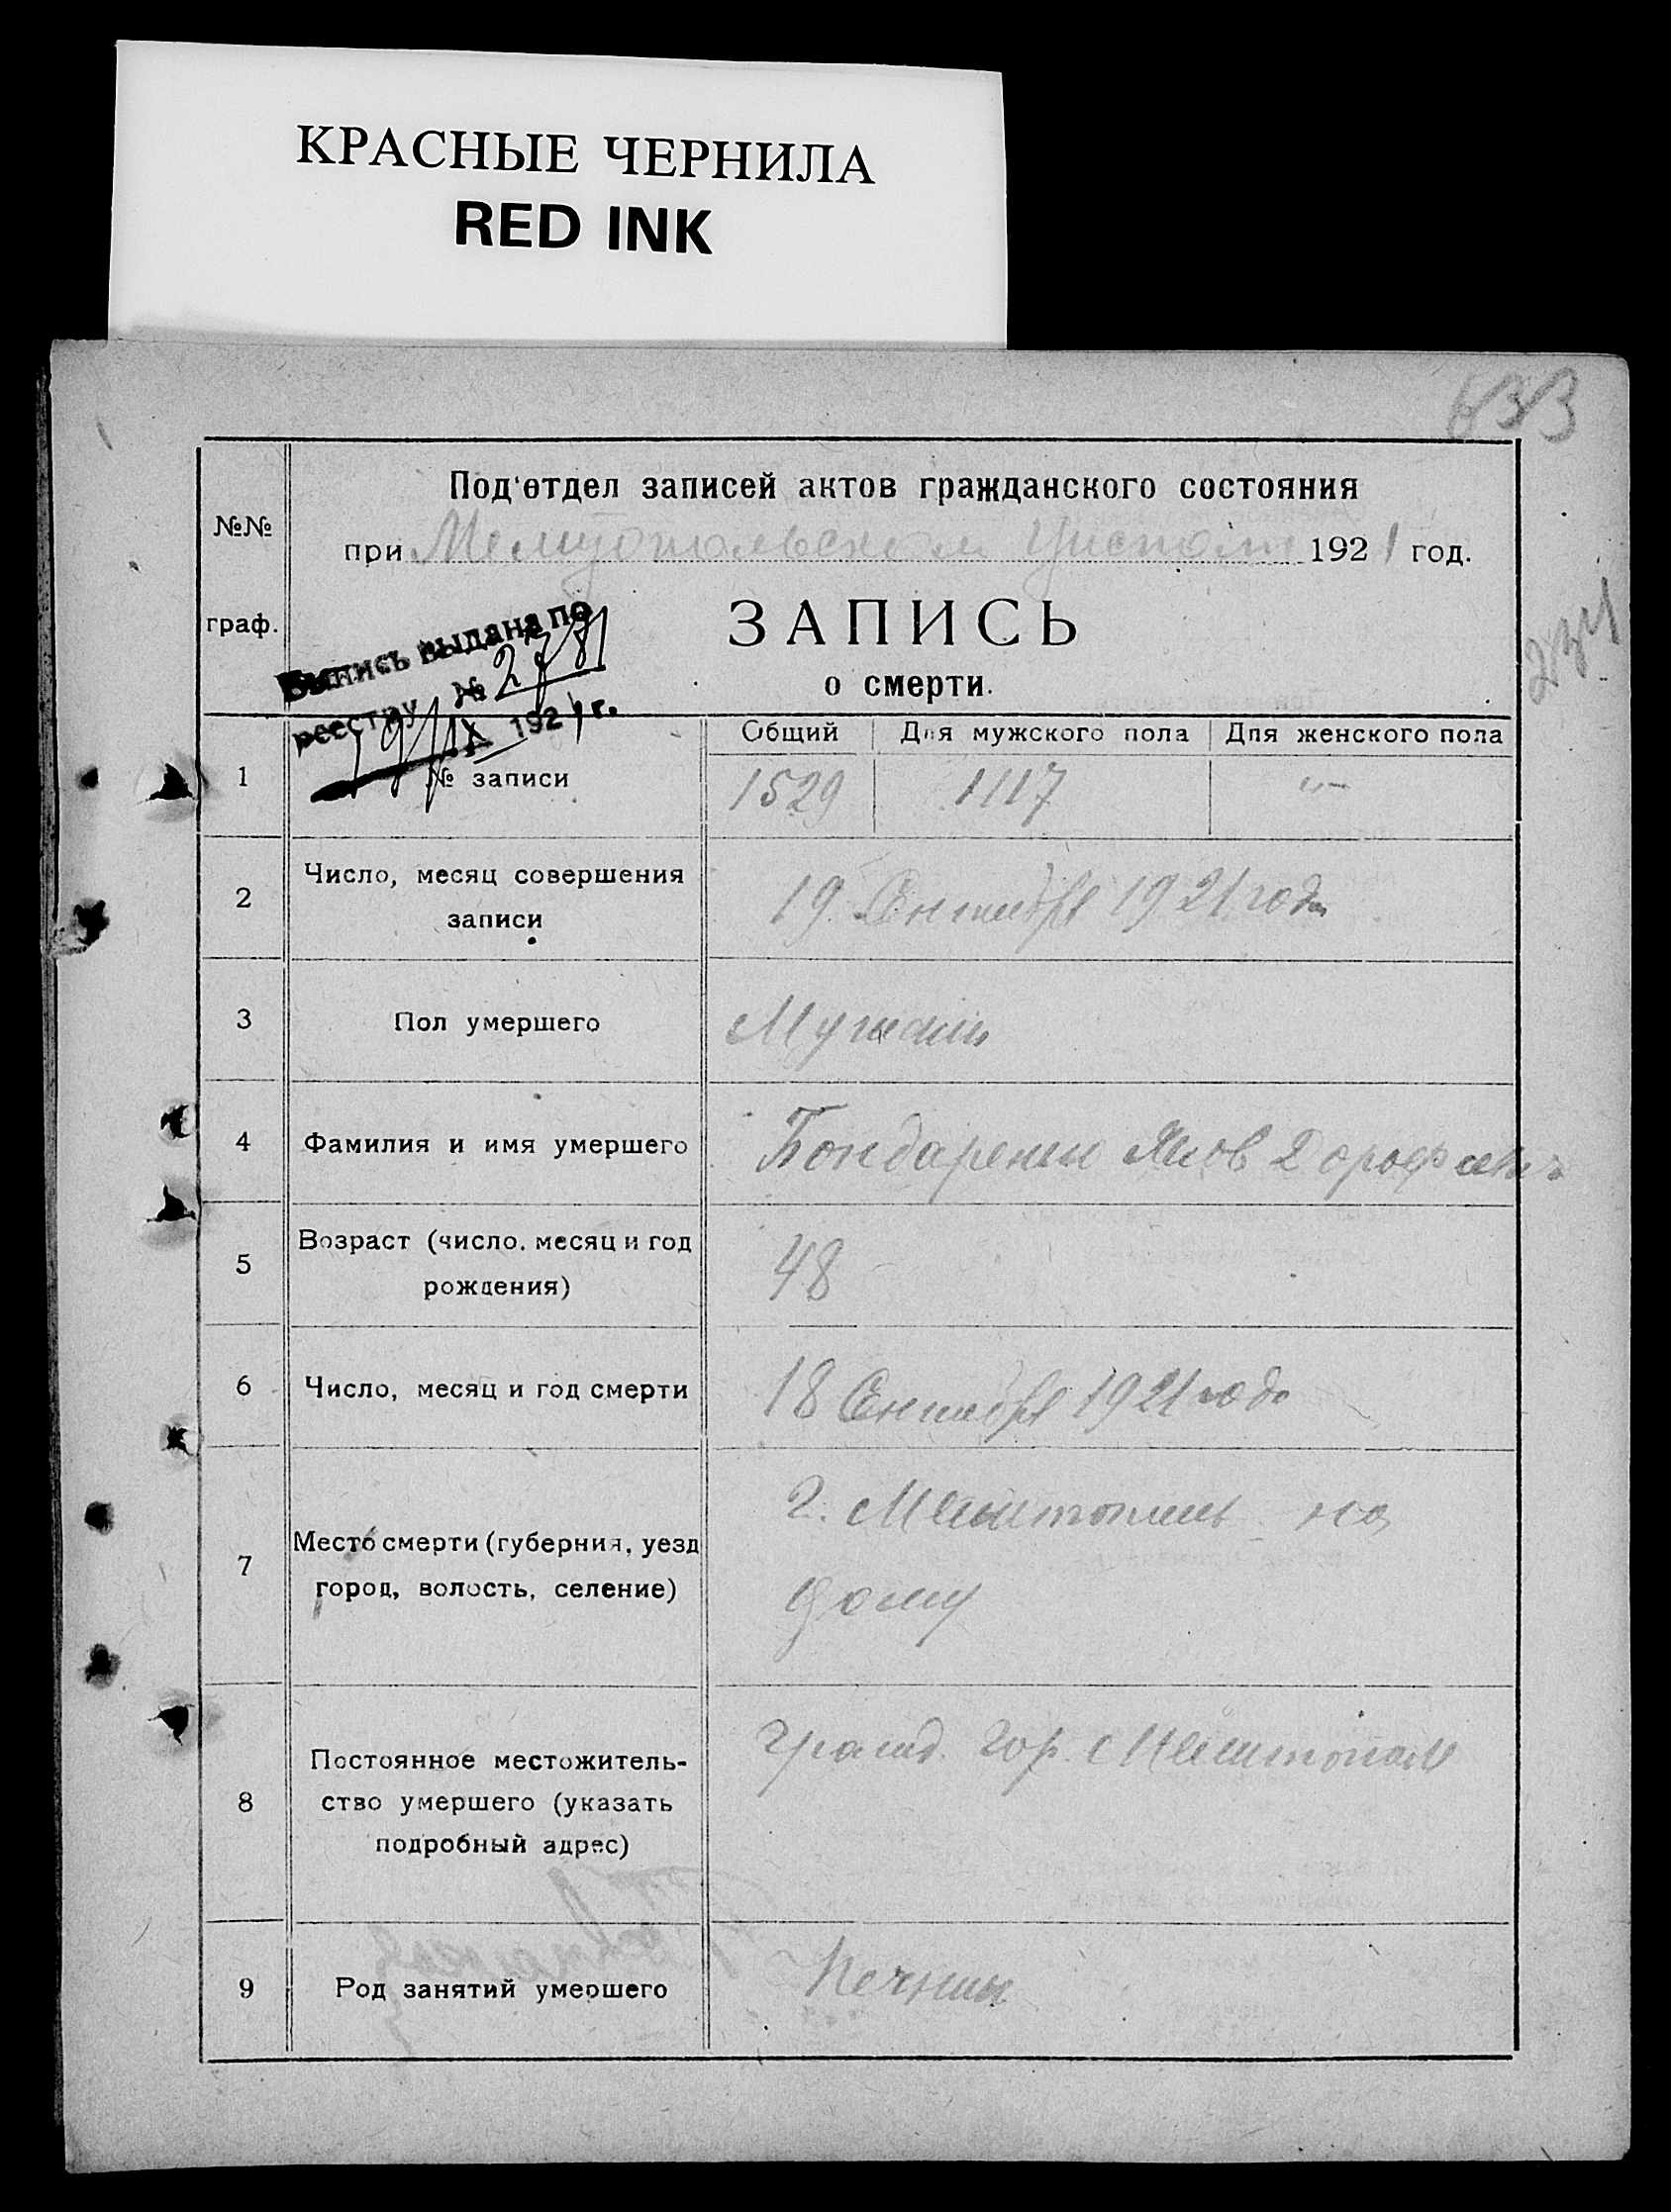 КРАСНЫЕ ЧЕРНИЛА
RED INK
633
Под'отдел записей актов гражданского состояния
№№
при Мелитопольском Уисполк 1921 год.
граф.
ЗАПИСЬ
о смерти.
Выпись выдана по
реестру № 2781
19/IX 1921 г.
234
Общий Для мужского пола Для женского пола
1 № записи 1529 1117 "–
2 Число, месяц совершения
записи
19 Сентября 1921 года
3 Пол умершего Мужской
4 Фамилия и имя умершего Бондаренко Яков Дорофеев
5 Возраст (число, месяц и год
рождения)
48
6 Число, месяц и год смерти 18 Сентября 1921 года
7 Место смерти (губерния, уезд
город, волость, селение)
г. Мелитополь на
дому
8 Постоянное местожитель-
ство умершего (указать
подробный адрес)
гражд. гор. Мелитополя
9 Род занятий умершего Печник